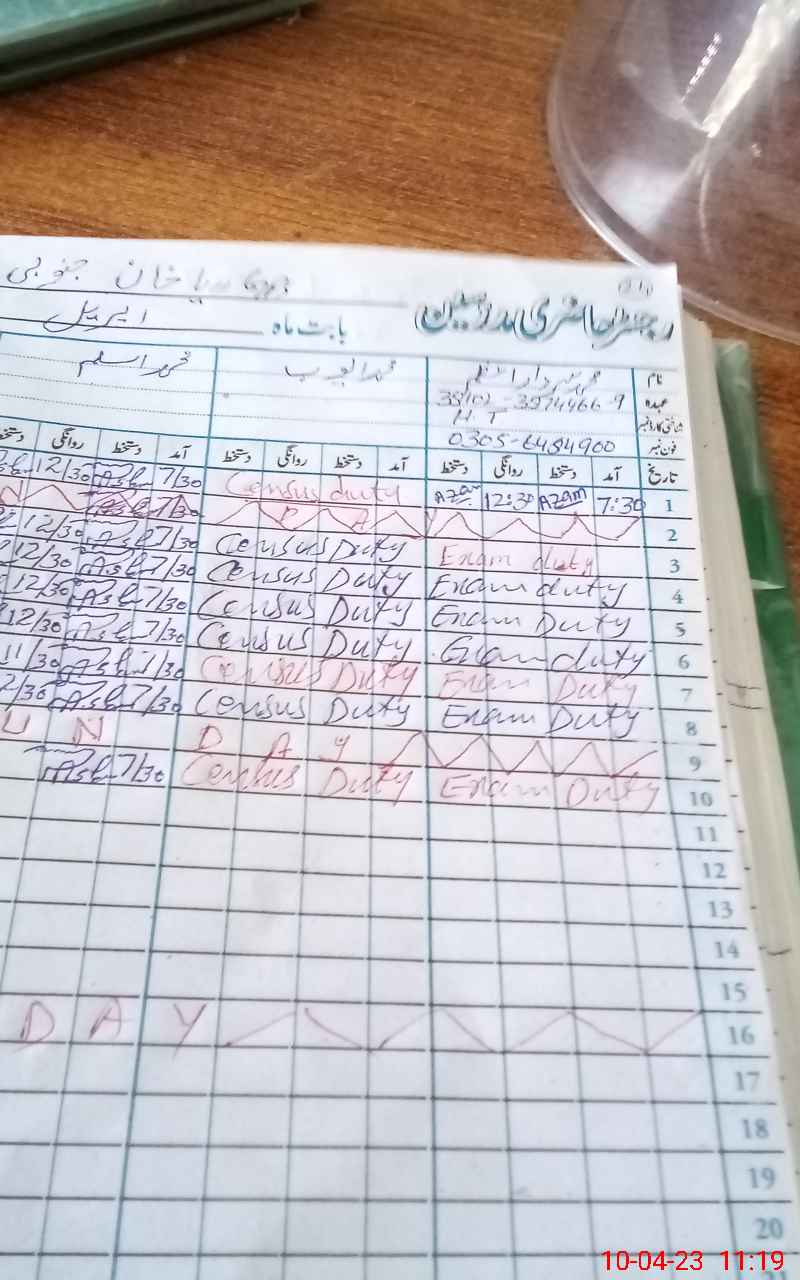 دریا خان جنوبی
رجسٹر حاضری مدرسین
بابت ماہ اپریل
نام محمد ایوب محمد اسلم
عہدہ
شناختی کارڈ نمبر H T
فون نمبر 0305-6484900
تاریخ آمد دستخط روانگی دستخط آمد دستخط روانگی دستخط آمد دستخط روانگی
1 7:30 Azam 12:30 Azam Census duty 7/30 12/30
2 D A Y 7/30 N
3 Exam duty Census Duty 7/30 12/30
4 Exam duty Census Duty 7/30 12/30
5 Exam Duty Census Duty 7/30 12/30
6 Exam duty Census Duty 7/30 12/30
7 Exam Duty Census Duty 7/30 11/30
8 Exam Duty Census Duty 7/30
9 U N D A Y
10 Exam Duty Census Duty 7/30
11
12
13
14
15
16 D A Y
17
18
19
20
10-04-23 11:19